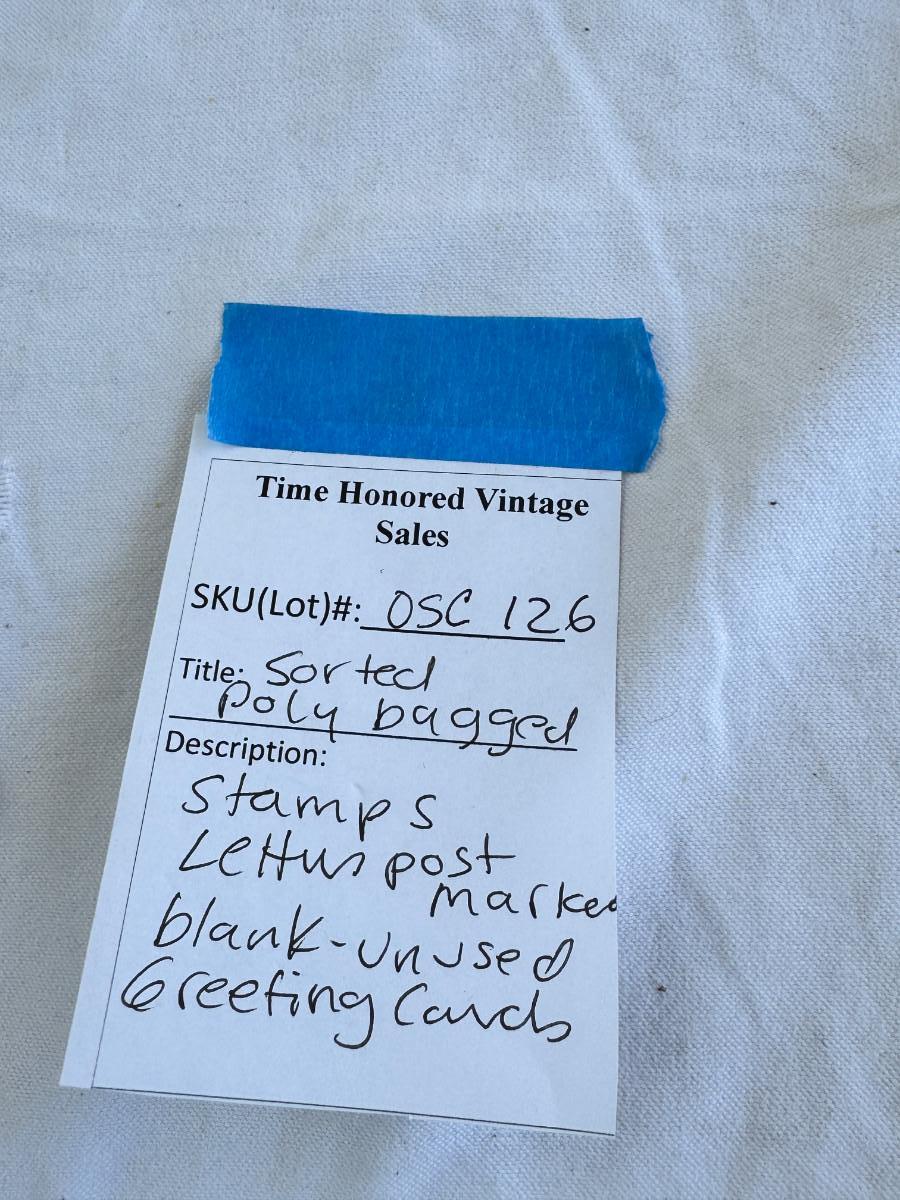 Time Honored Vintage
Sales
SKU(Lot)#: OSC 126
Title: Sorted
Poly bagged
Description:
Stamps
Letters post
marked
blank-unused
Greeting Cards